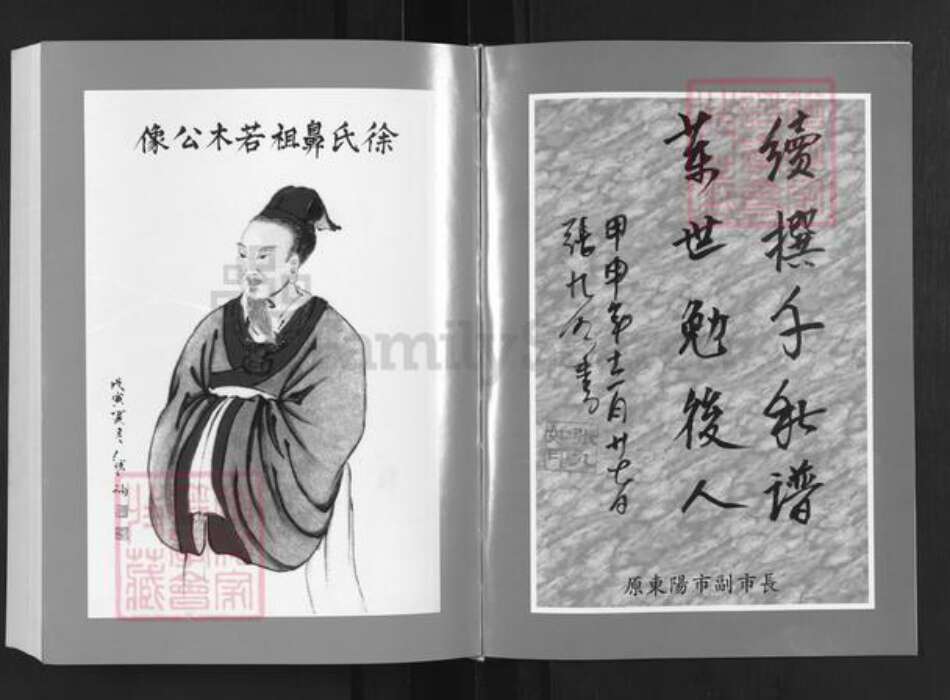 徐氏鼻祖若木公像
續撰千秋譜
葉世勉後人
甲申年十一月廿七日
張九
書
原東陽市副市長